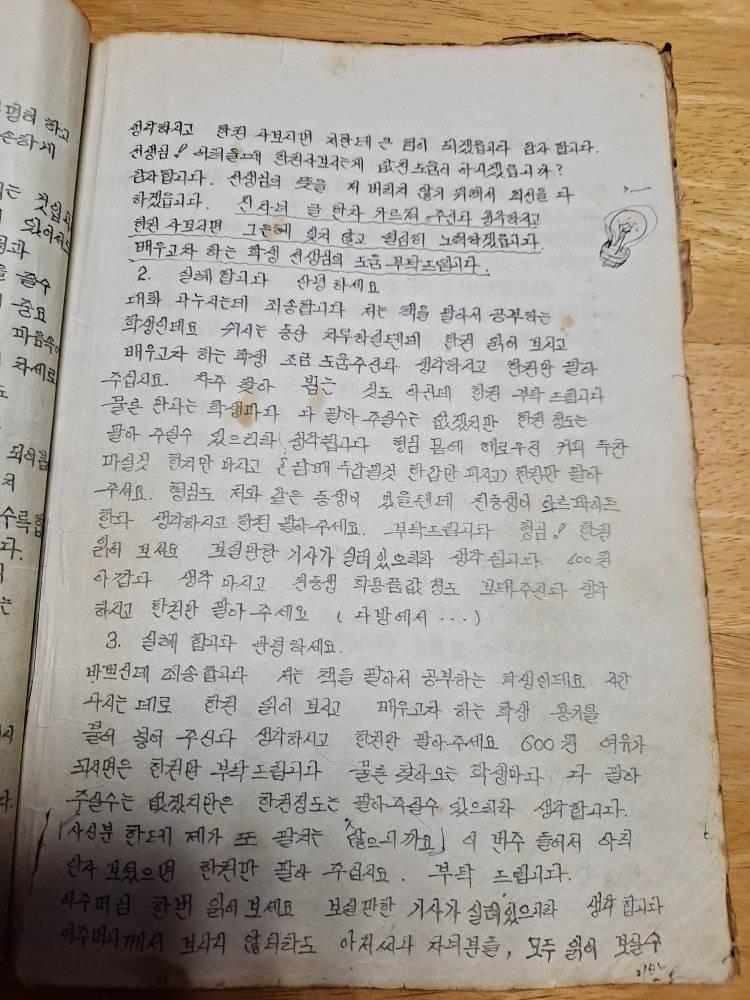 평히 하고
손하게
는 것입니
생각하시고 한권 사보시면 저한테 큰 힘이 되겠읍니다 감사 합니다.
선생님! 어려울때 한권사보시는게 값진 도움이 아니겠읍니까?
감사합니다. 선생님의 뜻을 저 버리지 않기 위해서 최선을 다
하겠읍니다. 친자녀 글 한자 가르쳐 주신다 생각하시고
한권 사보시면 그은혜 잊지 않고 열심히 노력하겠읍니다.
배우고자 하는 학생 선생님의 도움 부탁드립니다.
2. 실례 합니다 안녕 하세요
대화 나누시는데 죄송합니다 저는 책을 팔아서 공부하는
학생인데요 쉬시는 동안 지루하실텐데 한권 읽어 보시고
배우고자 하는 학생 조금 도와주신다 생각하시고 한권만 팔아
주십시요. 자주 찾아 뵙는 것도 아닌데 한권 부탁 드립니다
물론 만나는 학생마다 다 팔아 주실수는 없겠지만 한권 정도는
팔아 주실수 있으리라 생각됩니다 형님 몸에 해로우신 커피 두잔
마실것 한잔만 마시고 (담배 두갑필것 한갑만 피시고) 한권만 팔아
주세요. 형님도 저와 같은 동생이 있을텐데 친동생이 아르바이트
한다 생각하시고 한권 팔아 주세요. 부탁드립니다 형님! 한권
읽어 보세요 보실만한 기사가 실려있으리라 생각 됩니다 600원
아깝다 생각 마시고 친동생 학용품값 정도 보태주신다 생각
하시고 한권만 팔아 주세요 (다방에서 ...)
3. 실례 합니다 안녕하세요.
바쁘신데 죄송합니다 저는 책을 팔아서 공부하는 학생인데요 시간
나시는 데로 한권 읽어 보시고 배우고자 하는 학생 용기를
불어 넣어 주신다 생각하시고 한권만 팔아주세요 600원 여유가
되시면은 한권만 부탁드립니다 물론 찾아오는 학생마다 다 팔아
주실수는 없겠지만은 한권정도는 팔아주실수 있으리라 생각합니다.
(사신분 한테 제가 또 팔지는 않으니까요) 이번주 들어서 아직
안사 보셨으면 한권만 팔아 주십시요. 부탁 드립니다.
아주머님 한번 읽어 보세요 보실만한 기사가 실려있으리라 생각 합니다
아주머니께서 보시지 않더라도 아저씨나 자녀분들, 모두 읽어 보실수